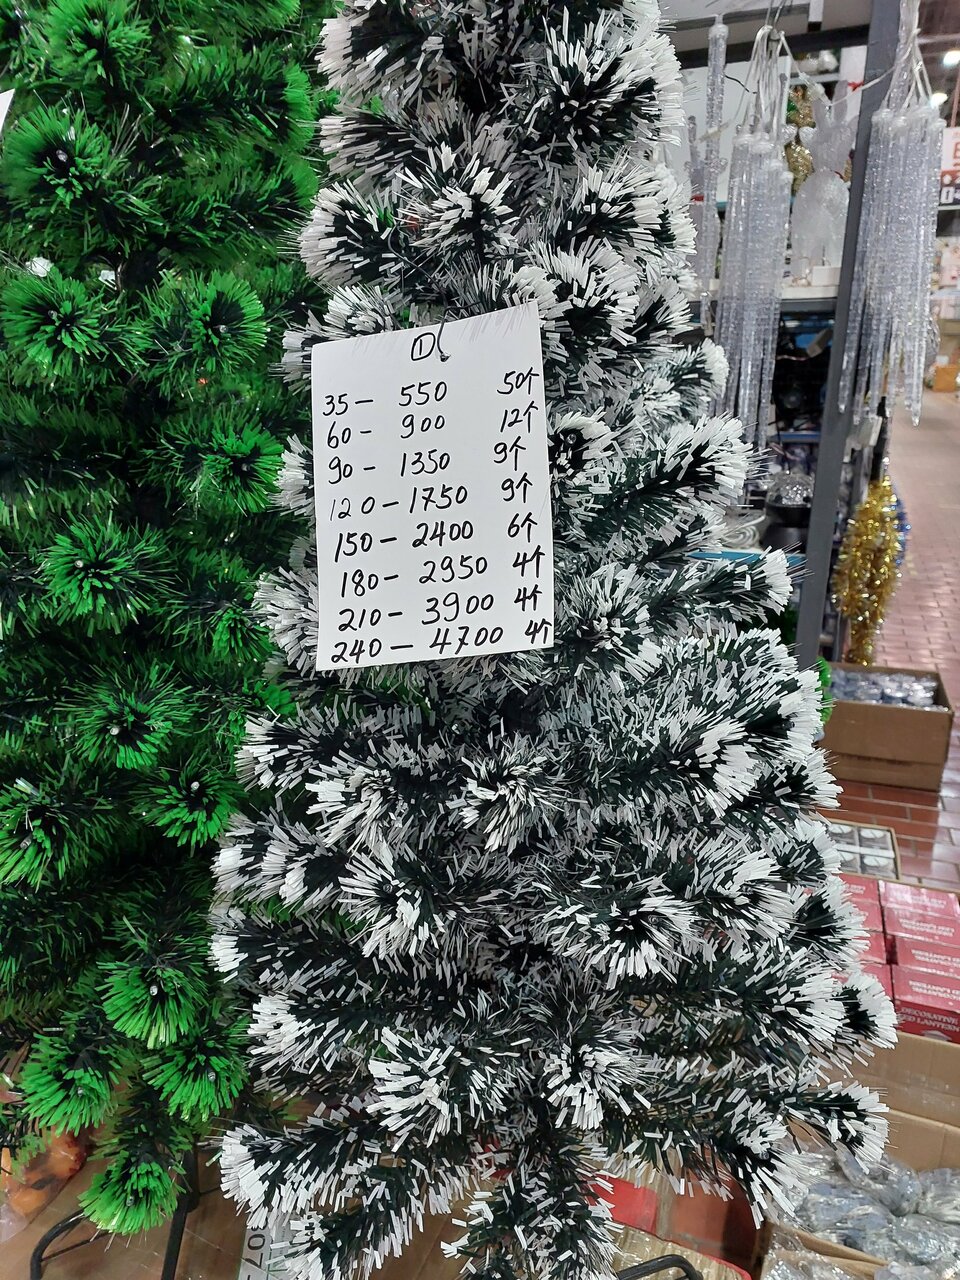 ①
35 – 550 50个
60 – 900 12个
90 – 1350 9个
120 – 1750 9个
150 – 2400 6个
180 – 2950 4个
210 – 3900 4个
240 – 4700 4个
DECORATIVE
LED LANTERN